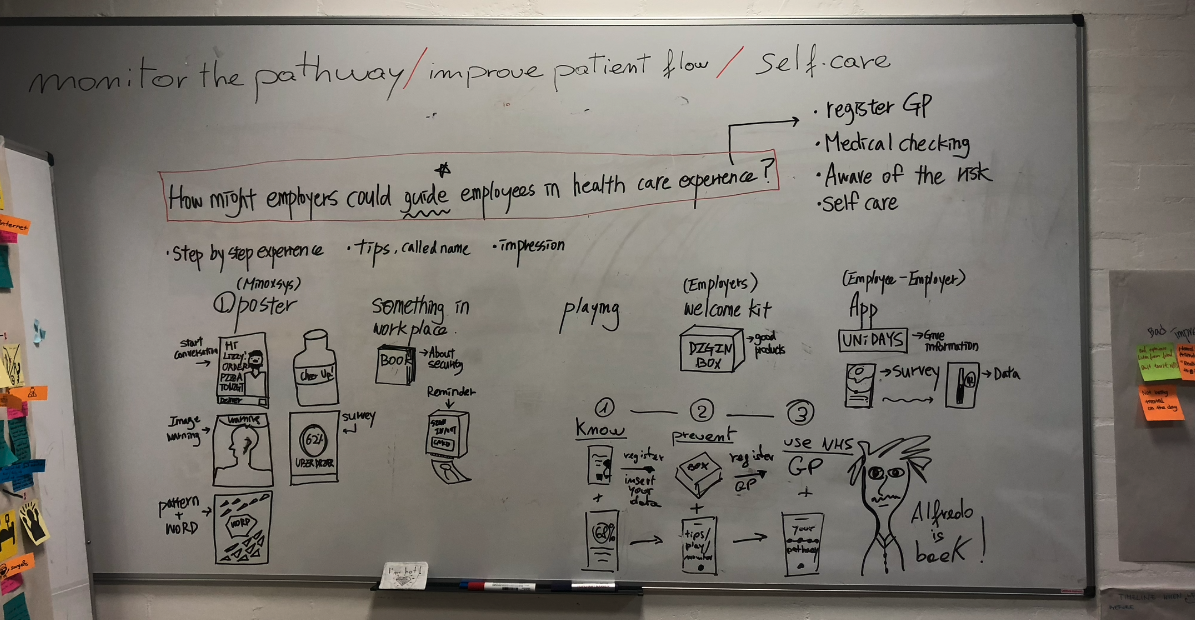 monitor the pathway/improve patient flow / self-care
• register GP
• Medical checking
• Aware of the risk
• Self care
How might employers could guide employees in health care experience?
• Step by step experience • tips, called name • impression
(Minoxsys)
① poster
something in
work place.
playing
(Employers)
welcome kit
(Employee-Employer)
App
start
conversation
HI
LIZZY!
ORDER
PIZZA
TONIGHT
Chер Up!
BOOK
About
security
Reminder
DIGIN
BOX
good
products
UNiDAYS
Give
information
survey
Data
Image
warning
survey
62%
pattern
+
WORD
WORD
① ② ③
Know
prevent
use NHS
GP
register
insert
your
data
BOX
register
GP
+
+
+
68%
tips/
play/
monitor
Your
pathway
Alfredo
is
back!